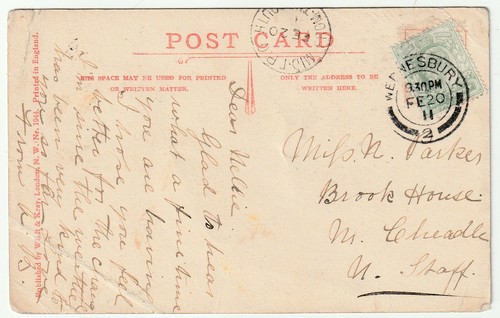 POST CARD
THIS SPACE MAY BE USED FOR PRINTED
OR WRITTEN MATTER.
ONLY THE ADDRESS TO BE
WRITTEN HERE.
Published by Welch & Kray, London, N. W. No. Printed in England.
WEDNESBURY
9.30PM
FE 20
11
2
FE 20
Dear Nellie
Glad to hear
what a fine time
you are having
I hope you feel
better for the change
I'm sure the weather
has been very kind to
you so far. Love
from
Miss N. Parker
Brook House
N. Cheadle
N. Staff.